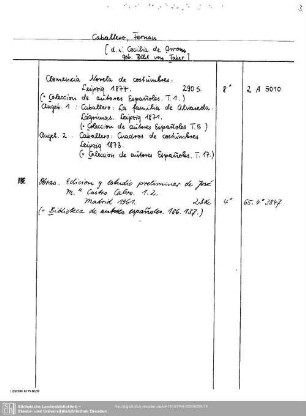 3
Caballero, Fernan
[d. i. Cecilia de Arrom
geb. Böhl von Faber]
Clemencia Novela de costumbres.
Leipzig 1877. 290 S. 8° 2 A 5010
(= Coleccion de autores Españoles. T. 1.)
Angeb. 1: Caballero: La familia de Alvareda.
Lágrimas. Leipzig 1871.
(= Coleccion de autores Españoles T. 5)
Angeb. 2: Caballero: Cuadros de costumbres
Leipzig 1873.
(= Coleccion de autores Españoles. T. 17.)
Obras. Edicion y estudio preliminar de José
M.ª Castro Calvo. 1. 2.
Madrid 1961. 4° 65. 4° 3847
(= Biblioteca de autores españoles. 136. 137.)